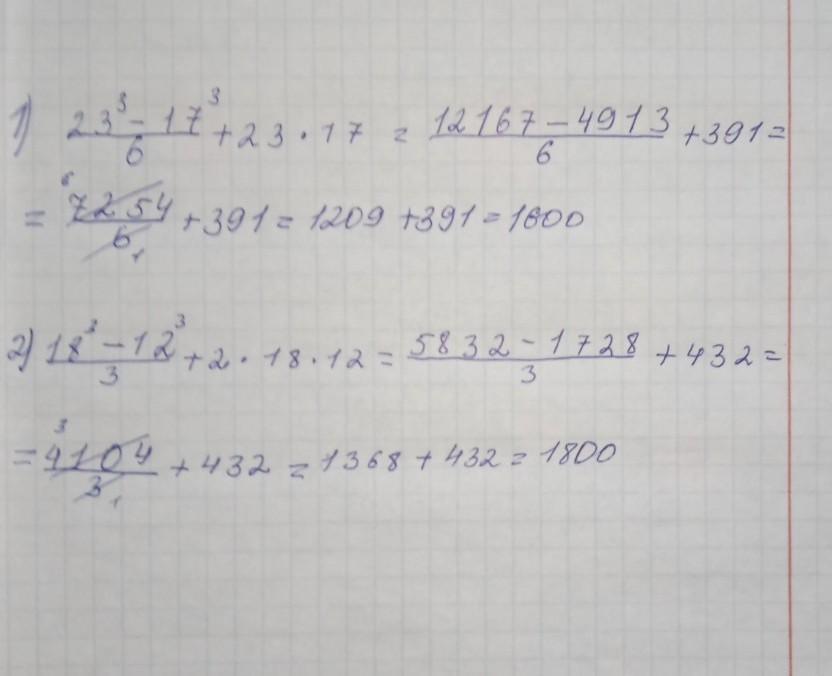 1) (23³ - 17³)/6 + 23 · 17 = (12167 - 4913)/6 + 391 =
= 7254/6 + 391 = 1209 + 391 = 1600
2) (18³ - 12³)/3 + 2 · 18 · 12 = (5832 - 1728)/3 + 432 =
= 4104/3 + 432 = 1368 + 432 = 1800